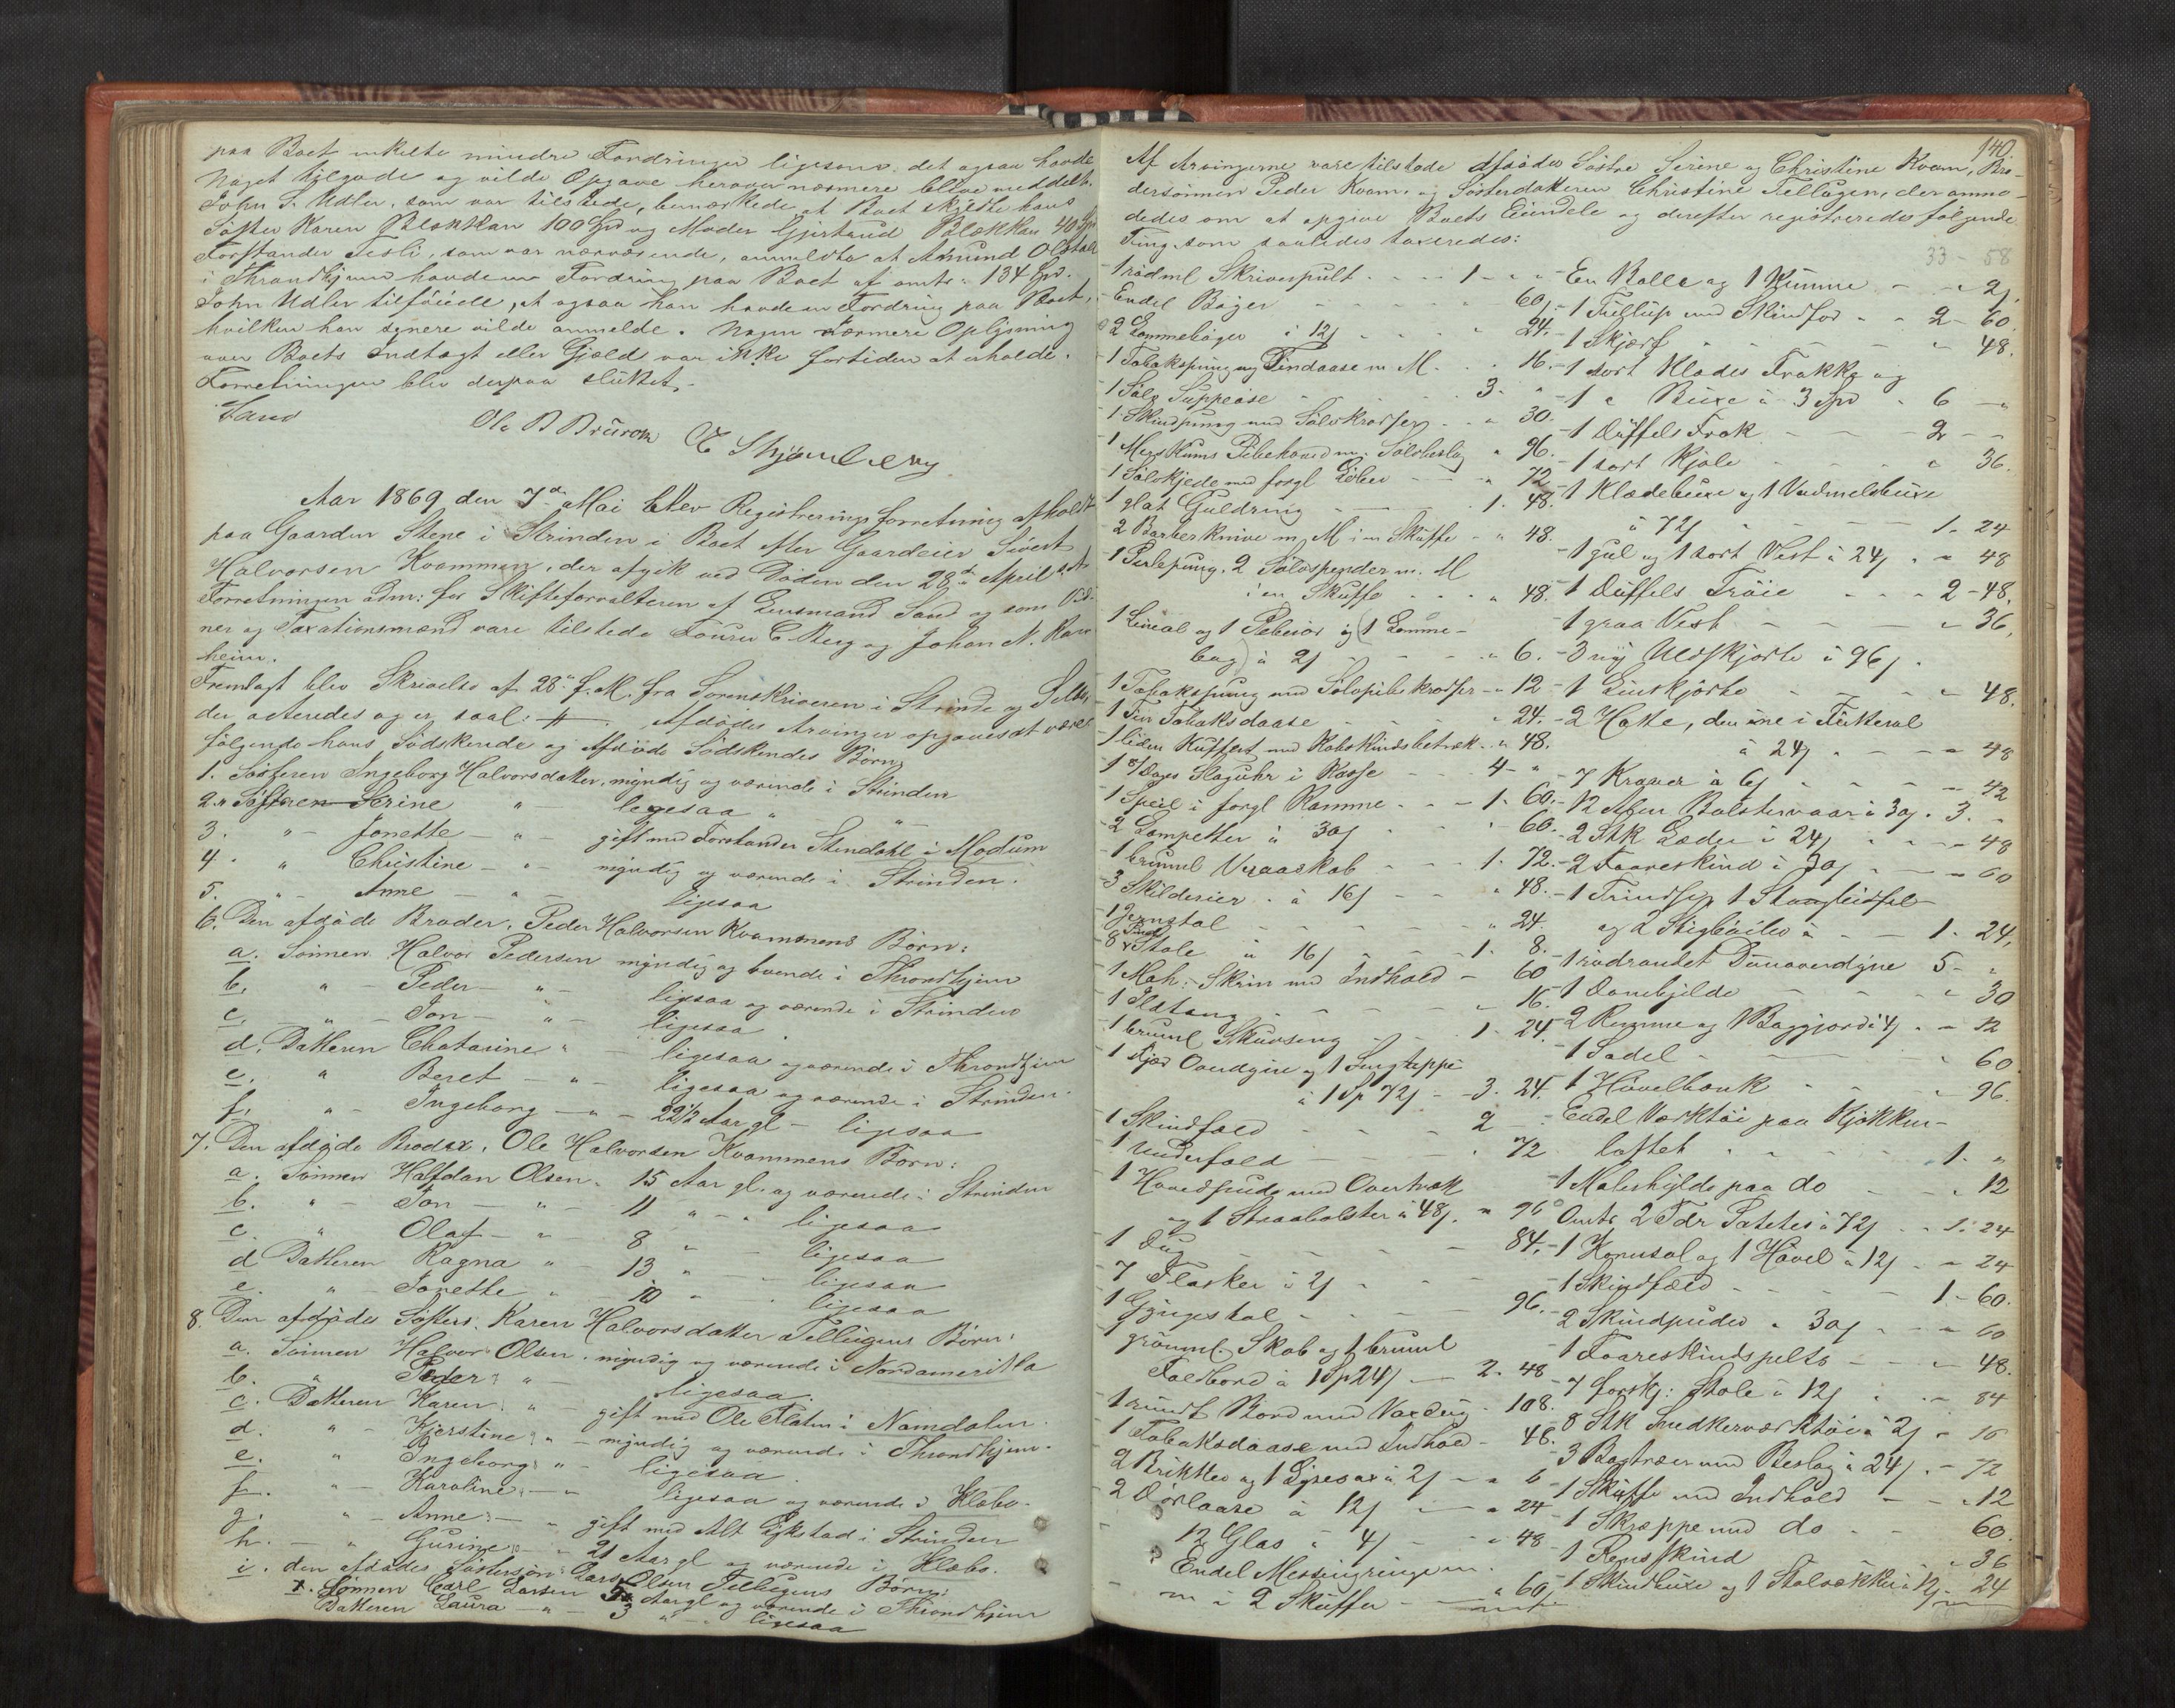 paa Boet enkelte mindre Fordringer ligesom det ogsaa havde
Noget tilgode og vilde Opgave herover nærmere blive meddelt.
John S. Udler, som var tilstede, bemærkede at Boet skyldte hans
Søster Karen Blækkan 100 Spd og Moder Gjertrud Blækkan 40 Spd
Forstander Fesli, som var nærværende, anmeldte at Amund Olstad
i Throndhjem havde en Fordring paa Boet af omtr. 134 Spd.
John Udler tilføiede, at ogsaa han havde en Fordring paa Boet,
hvilken han senere vilde anmelde. Nogen nærmere Oplysning
over Boets Indtægt eller Gjæld var ikke fortiden at erholde.
Forretningen blev derpaa sluttet.
Sand
Ole B Brurok
Aar 1869 den 7de Mai blev Registreringsforretning afholdt
paa Gaarden Stene i Strinden i Boet efter Gaardeier Sivert
Halvorsen Kvammen, der afgik ved Døden den 28de April sidstl.
Forretningen adm: for Skifteforvalteren af Lensmand Sand og som Vid-
ner og Taxationsmænd vare tilstede Laurs C Berg og Johan N. Ran-
heim.
Fremlagt blev Skrivelse af 28de f. M. fra Sorenskriveren i Strinde og Selbu,
der acteredes og er saal: #. Afdødes Arvinger opgaves at være
følgende hans Sødskende og Afdøde Sødskendes Børn:
1. Søsteren Ingeborg Halvorsdatter, myndig og værende i Strinden
2. Søsteren Serine " ligesaa "
3. " - Jonette - " - gift med Forstander Stendahl i Modum
4. " Christine - " - myndig og værende i Strinden.
5. " Anne - " - ligesaa
6. Den afdøde Broder, Peder Halvorsen Kvammens Børn:
a. Sønnen Halvor Pedersen myndig og boende i Throndhjem
b. " - Peder - " - ligesaa og værende i Strinden
c. " - Jon - " - ligesaa
d. Datteren Chatarine " - ligesaa og værende i Throndhjem
e. " Beret - " - ligesaa og værende i Strinden.
f. " - Ingeborg - " - 22½ Aar gl - ligesaa
7. Den afdøde Broder, Ole Halvorsen Kvammens Børn:
a. Sønnen Halfdan Olsen. 15 Aar gl. og værende i Strinden
b. " - Jon - " - 11 " - " ligesaa
c. " Olaf - " - 8 " - ligesaa
d Datteren Ragna " - 13 " - ligesaa
e. " - Jonette " - 10 " - ligesaa
8. Den afdøde Søsters, Karen Halvorsdatter Tellugens Børn:
a. Sønnen Halvor Olsen. myndig og værende i Nordamerika
b. " Peder " - ligesaa.
c. Datteren Karen " - gift med Ole Flaten i Namdalen.
d. " Kjerstine " - myndig og værende i Throndhjem.
e. " Ingeborg " - ligesaa.
f. " - Karoline - " ligesaa og værende i Klæbo.
g. " - Anne - " gift med Alt Ekstad i Strinden
h. - " Gurine " - 21 Aar gl og værende i Klæbo.
i. den afdødes Søstersøn Lars Olsen Tellugens Børn:
1. Sønnen Carl Larsen 5 Aar gl og værende i Throndhjem
Datteren Laura - " - 3 " - ligesaa
140
Af Arvingerne vare tilstede Afdødes Søstre Serine og Christine Kvam, Bro-
dersønnen Peder Kvam, og Søsterdatteren Christine Tellugen, der anmo-
dedes om at opgive Boets Eiendele og derefter registreredes følgende
Ting som saaledes taxeredes:
33 - 58
1 rødml Skriverpult - - - 1 - "
Endel Bøger - - - 60
2 Lommebøger à 12 ß - - - 24.
1 Tobakspung og Tindaase m M. - - 16.
1 Sølv Suppeøse - - - 3. "
1 Skindpung med Sølvkradser - - " 30.
1 Merskums Pibehoved m. Sølvbeslag " 96.
1 Sølvkjede med forgl - - - " 72
1 glat Guldring - - 1. 48.
2 Barberknive m. M i en Skuffe - " 48.
1 Perlepung, 2 Sølvspænder m. M
i en Skuffe - - - " 48.
1 Lineal og 1 Peberør og (1 Lomme-
bog) à 2 ß - - - " 6.
1 Tobakspung med Sølvpibekradser - " 12
1 Tin Tobaksdaase - - - " 24.
1 liden Kuffert med Kobskindsbetræk - " 48.
1 8/Dages Slaguhr i Kasse - - 4 - "
1 Speil i forgl Ramme - - - 1. 60.
2 Lampetter à 30 ß - - - 60.
1 bruunml Vraaskab - - - 1. 72.
3 Skilderier à 16 ß - - - " 48.
1 Jernstol - - - " 24.
8 Stole à 16 ß - - - 1. 8.
1 Mah: Skrin med Indhold - 60
1 Ildtang - - - " 16.
1 bruunl Skuvseng - - - 1. 24.
1 Fjær Overdyne og 1 Sengtæppe
à 1 Sp 72 ß - 3. 24.
1 Skindfæld - - - 2 -
1 Underfæld - - - 72
1 Hovedpude med Overtræk
og 1 Straabolster à 48 ß. " 96
1 Dug - - - 84.
7 Flasker à 2 ß - - -
1 Gyngestol - - - 96.
grønml. Skab og 1 bruunl
Foldbord à 1 Sp 24 ß - 2. 48
1 rundt Bord med Voxdug - 108.
1 Tobaksdaase med Indhold - 48.
2 Brikker og 1 Lysesax à 2 ß - " 6
2 Dørlaase à 12 ß - " 24
12 Glas à 4 ß - " 48
Endel Messingringe m.
m i 2 Skuffer - " 60
En Balle og 1 Kumme - - 2 ß
1 Fuldlup med Skindfor - " 2 - 60.
1 Skjærf - - - " 48.
1 sort Klædes Frakke og
1 " Buxe à 3 Spd " 6 - "
1 Düffels Frak - - - 2 - -
1 sort Kjole - - - " 36.
1 Klædebuxe og 1 Vadmelsbuxe
à 72 ß - - - 1 - 24
1 gul og 1 sort Vest à 24 ß - " 48
1 Düffels Trøie - - - 2 - 48.
1 graa Vest - - - " 36.
3 nye Uldskjorte à 96 ß.
1 Linskjorte - - - " 48.
2 Hatte, den ene i Futteral
à 24 ß - - - " 48
7 Kraver à 6 ß - - - " 42
12 Alen Bolstervaar à 30 ß. 3. "
2 Stk Læder à 24 ß - - - " 48
2 Faareskind à 30 ß - - - " 60
1 Trindsep, 1 Stangbidsel
og 2 Stigbøiler à - - 1. 24.
1 rødrandet Dunoverdyne 5 - "
1 Dombjelde - - - " 30
2 Remme og 1 Baggjord à 4 ß - " 12
1 Sadel - - - " 60
1 Høvelbænk - - - " 96.
Endel Værktøi paa Kjøkken-
loftet - - - 1. "
1 Malerhylde paa do - - - " 12
Omtr. 2 Tdr Potetes à 72 ß - - 1. 24
1 Kornsol og 1 Høvel à 12 ß - - 24
1 Skindfæld - - - 1 - 60.
2 Skindpuder à 30 ß - - " 60
1 Faareskindspelts - - - " 48.
7 forskj: Stole à 12 ß - - " 84
8 Stk Snedkerværktøi à 2 ß " 16
3 Bogtræer med Beslag à 24 ß - 72
1 Skuffe med Indhold - - " 12
1 Skræppe med do - - 60.
1 Rensskind - - " 36
1 Skindbuxe og 1 à 12 ß - 24